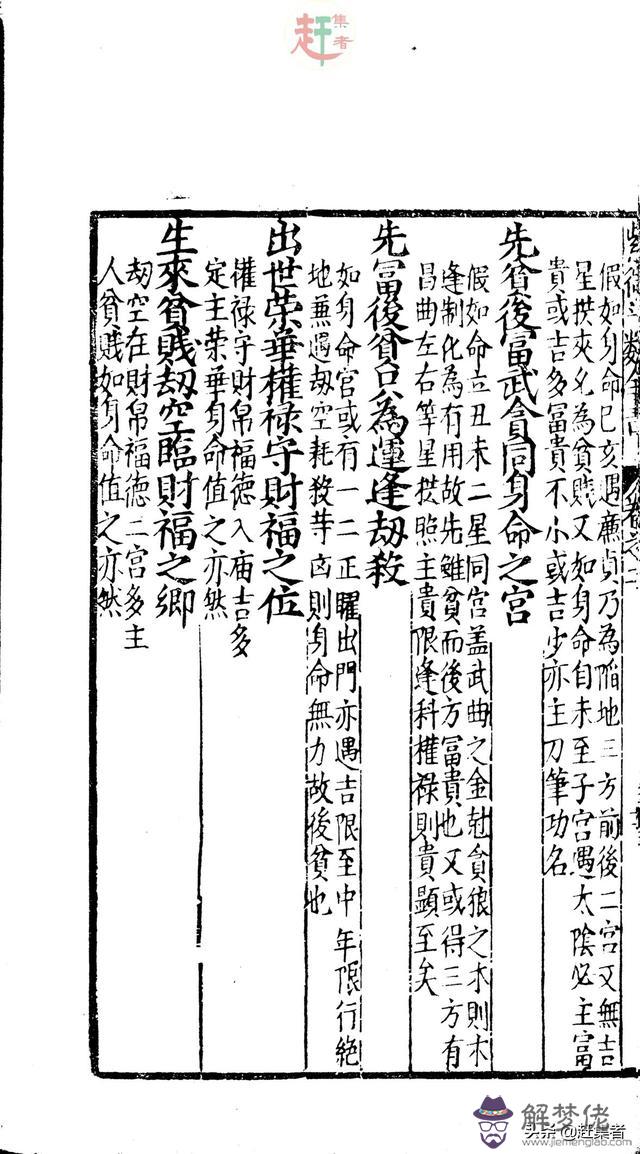 趕集者
假如身命巳亥遇廉貞乃為陷地三方前後二宮又無吉
星拱夾必為貧賤又如身命自未至子宮遇太陰必主富
貴或吉多富貴不小或吉少亦主刀筆功名
先貧後富武貪同身命之宮
假如命立丑未二星同宮盖武曲之金尅貪狼之木則木
逢制化為有用故先雖貧而後方富貴也又或得三方有
昌曲左右等星拱照主貴限逢科權祿則貴顯至矣
先富後貧只為運逢劫殺
如身命宮或有一二正曜出門亦遇吉限至中年限行絕
地兼遇劫空耗殺等凶則身命無力故後貧也
出世荣華權祿守財福之位
權祿守財帛福德入庙吉多
定主荣華身命值之亦然
生來貧賤劫空臨財福之鄉
劫空在財帛福德二宮多主
人貧贱如身命值之亦然
解梦佬
www.jiemenglao.com
头条@赶集者